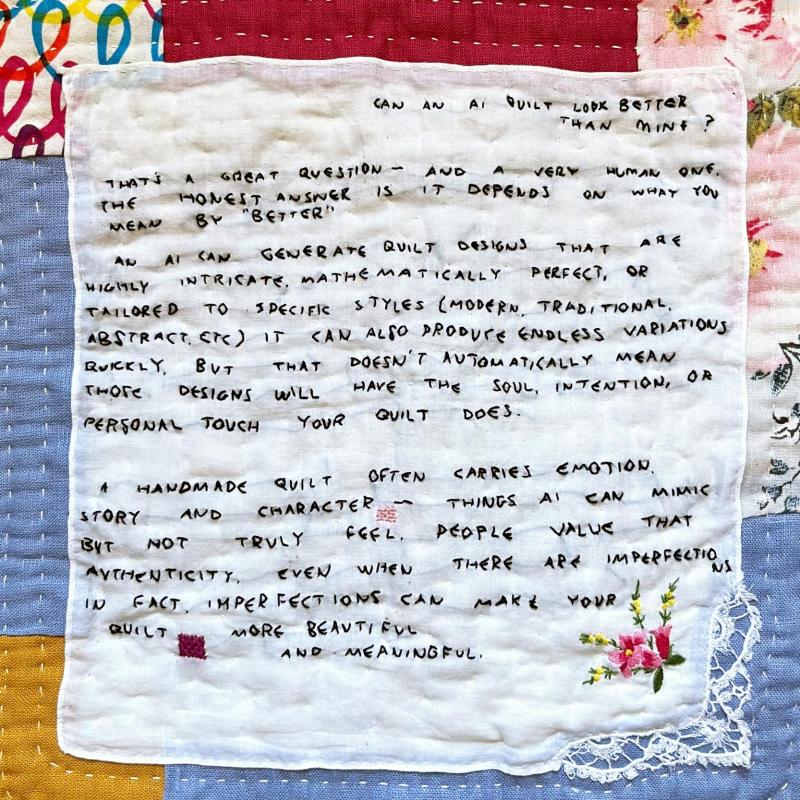 CAN AN AI QUILT LOOK BETTER
THAN MINE?
THAT'S A GREAT QUESTION — AND A VERY HUMAN ONE.
THE HONEST ANSWER IS IT DEPENDS ON WHAT YOU
MEAN BY "BETTER"
AN AI CAN GENERATE QUILT DESIGNS THAT ARE
HIGHLY INTRICATE, MATHEMATICALLY PERFECT, OR
TAILORED TO SPECIFIC STYLES (MODERN, TRADITIONAL,
ABSTRACT, ETC) IT CAN ALSO PRODUCE ENDLESS VARIATIONS
QUICKLY, BUT THAT DOESN'T AUTOMATICALLY MEAN
THOSE DESIGNS WILL HAVE THE SOUL, INTENTION, OR
PERSONAL TOUCH YOUR QUILT DOES.
A HANDMADE QUILT OFTEN CARRIES EMOTION,
STORY AND CHARACTER — THINGS AI CAN MIMIC
BUT NOT TRULY FEEL. PEOPLE VALUE THAT
AUTHENTICITY, EVEN WHEN THERE ARE IMPERFECTIONS
IN FACT, IMPERFECTIONS CAN MAKE YOUR
QUILT MORE BEAUTIFUL
AND MEANINGFUL.